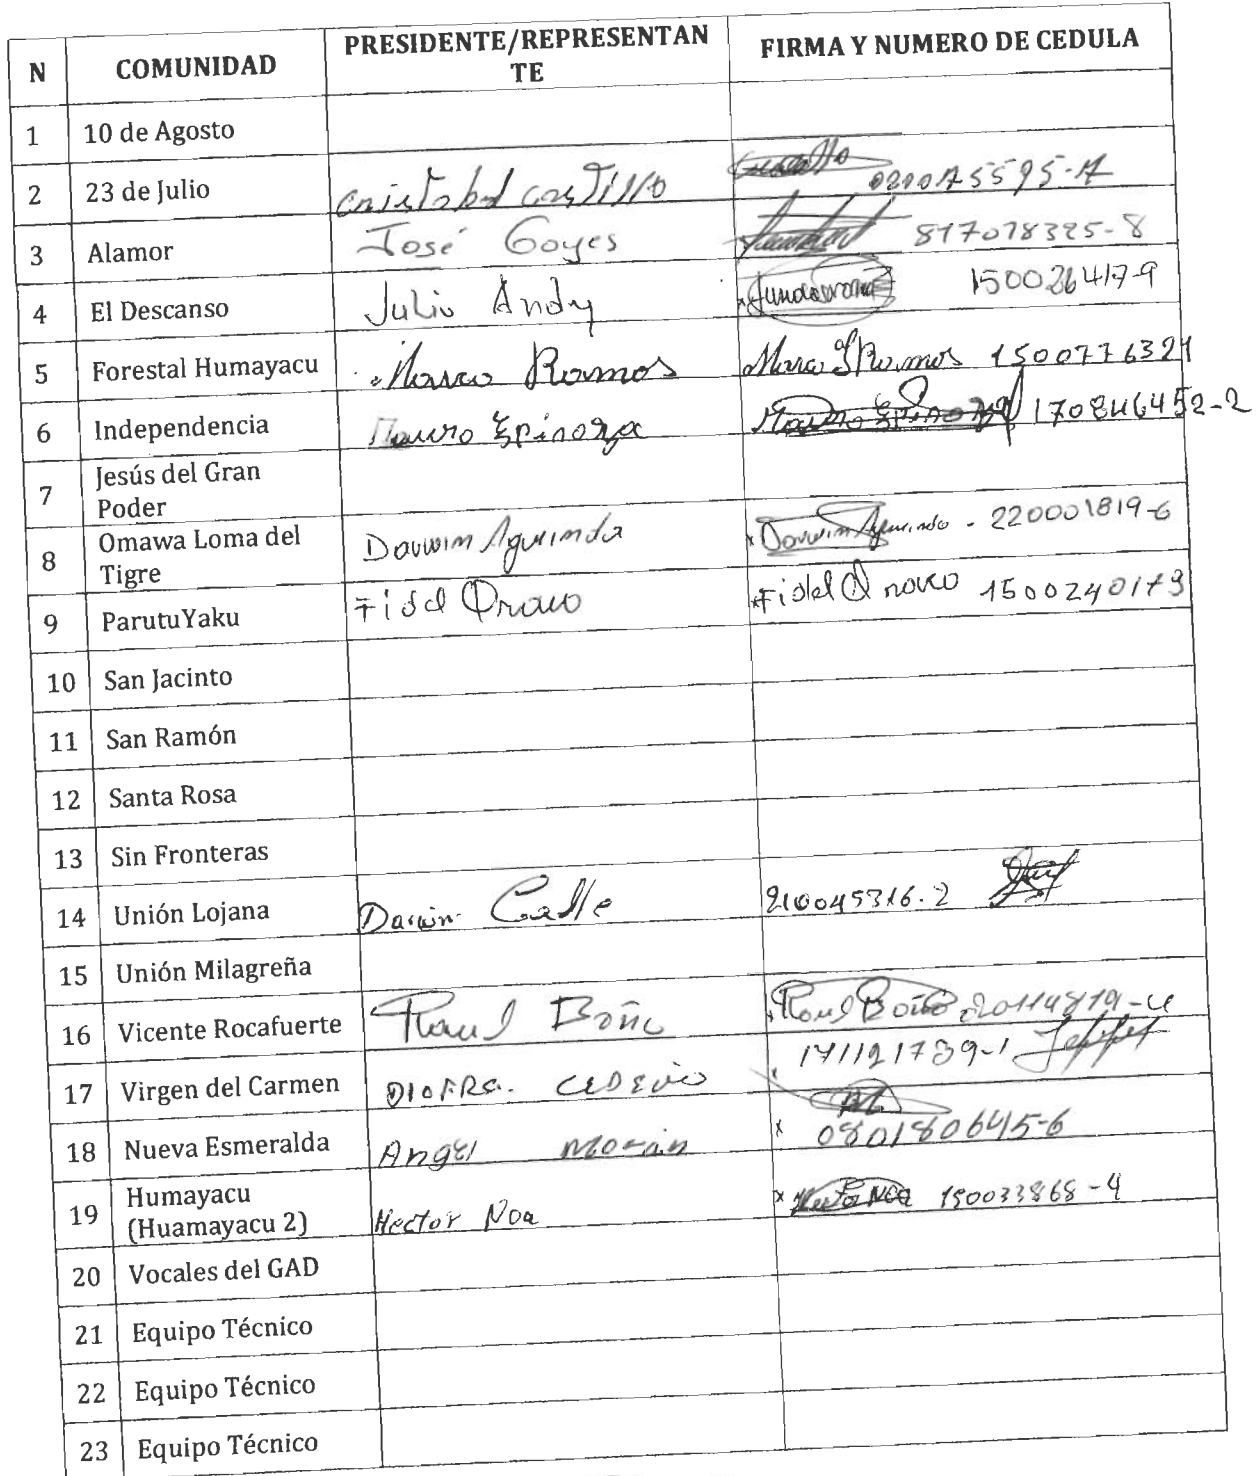 N COMUNIDAD PRESIDENTE/REPRESENTAN FIRMA Y NUMERO DE CEDULA
TE
1 10 de Agosto
2 23 de Julio cristobal castillo
3 Alamor José Goyes 817078325-8
4 El Descanso Julio Andy 150026417-9
5 Forestal Humayacu Marco Ramos Marco Ramos 1500776321
6 Independencia Mauro Espinoza Mauro Espinoza 170846452-2
7 Jesús del Gran
Poder
8 Omawa Loma del Darwin Aguinda Darwin Aguinda - 220001819-6
Tigre
9 ParutuYaku Fidel Fidel 1500240173
10 San Jacinto
11 San Ramón
12 Santa Rosa
13 Sin Fronteras
14 Unión Lojana Darwin Calle 210045316-2
15 Unión Milagreña
16 Vicente Rocafuerte Raul Raul
17 Virgen del Carmen CEDEÑO 171121739-1
18 Nueva Esmeralda Angel Morán 080180645-6
19 Humayacu Hector Noa Hector Noa 150033868-4
(Huamayacu 2)
20 Vocales del GAD
21 Equipo Técnico
22 Equipo Técnico
23 Equipo Técnico